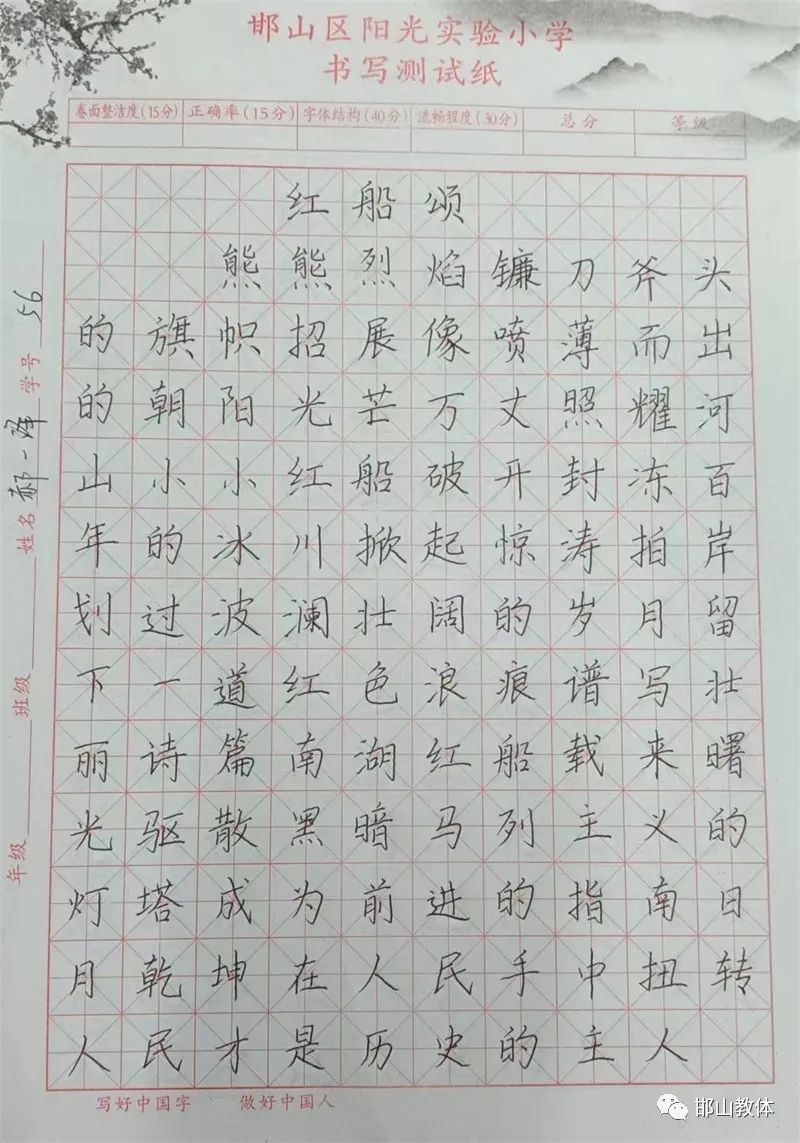 邯山区阳光实验小学
书写测试纸
卷面整洁度(15分) 正确率(15分) 字体结构(40分) 流畅程度(30分) 总分 等级
红船颂
熊熊烈焰镰刀斧头
的旗帜招展像喷薄而出
的朝阳光芒万丈照耀河
山小小红船破开封冻百
年的冰川掀起惊涛拍岸
划过波澜壮阔的岁月留
下一道红色浪痕谱写壮
丽诗篇南湖红船载来曙
光驱散黑暗马列主义的
灯塔成为前进的指南日
月乾坤在人民手中扭转
人民才是历史的主人
年级 班级 姓名 郝一 学号 56
写好中国字 做好中国人
邯山教体